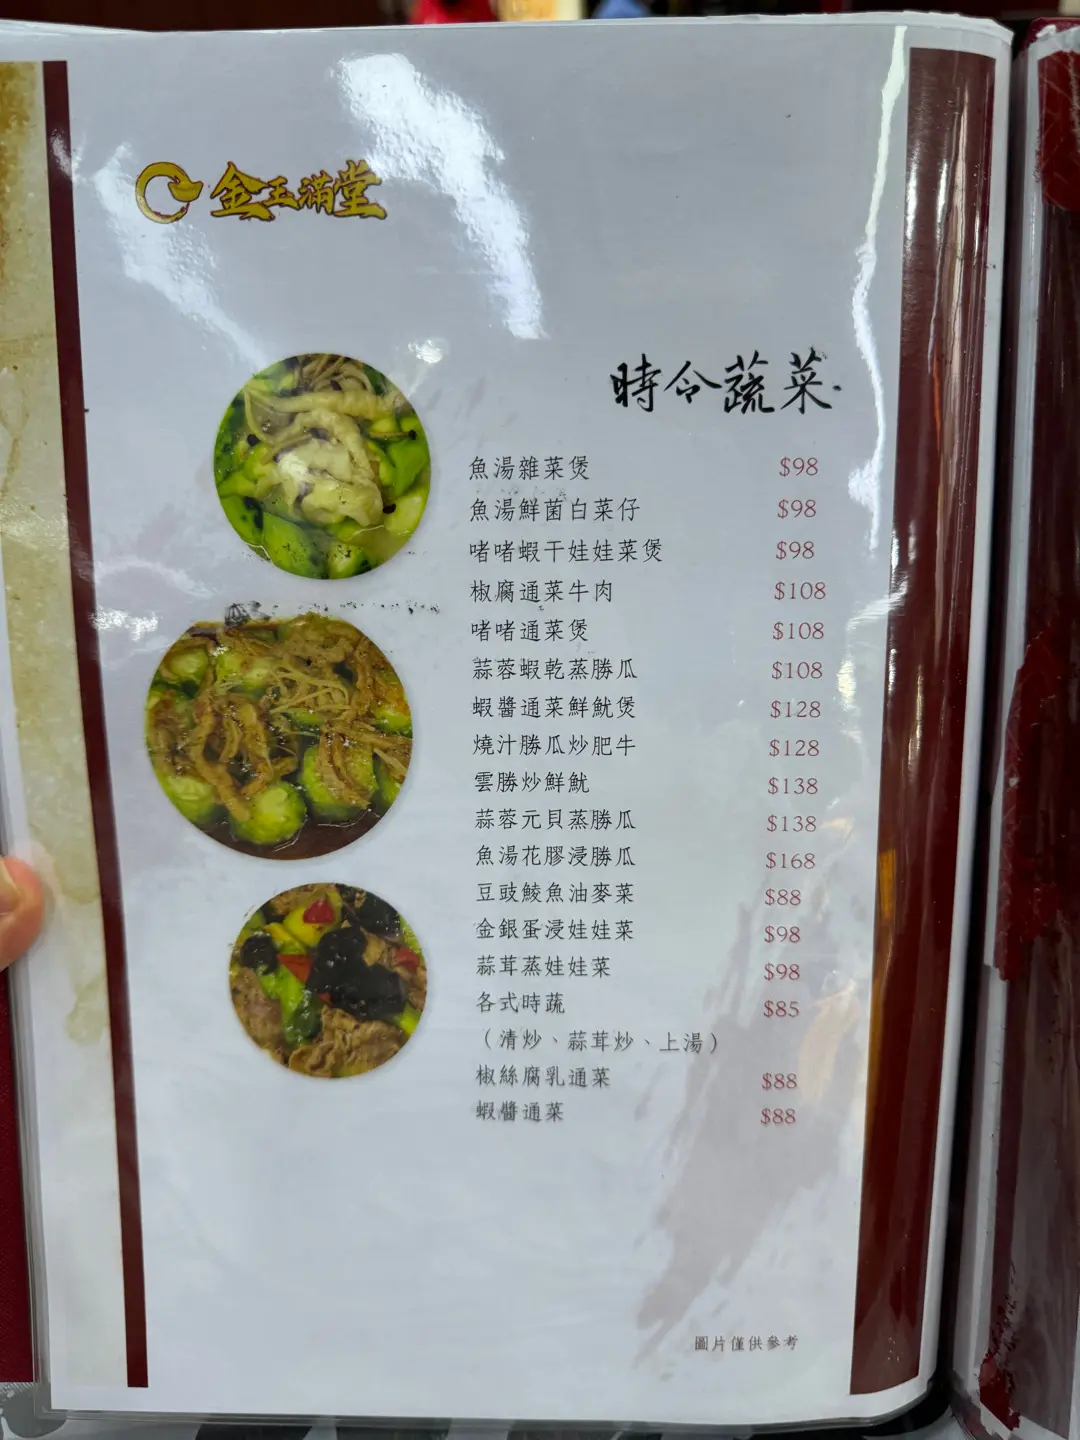 金玉滿堂
時令蔬菜
魚湯雜菜煲 $98
魚湯鮮菌白菜仔 $98
啫啫蝦干娃娃菜煲 $98
椒腐通菜牛肉 $108
啫啫通菜煲 $108
蒜蓉蝦乾蒸勝瓜 $108
蝦醬通菜鮮魷煲 $128
燒汁勝瓜炒肥牛 $128
雲勝炒鮮魷 $138
蒜蓉元貝蒸勝瓜 $138
魚湯花膠浸勝瓜 $168
豆豉鯪魚油麥菜 $88
金銀蛋浸娃娃菜 $98
蒜茸蒸娃娃菜 $98
各式時蔬 $85
（清炒、蒜茸炒、上湯）
椒絲腐乳通菜 $88
蝦醬通菜 $88
圖片僅供參考